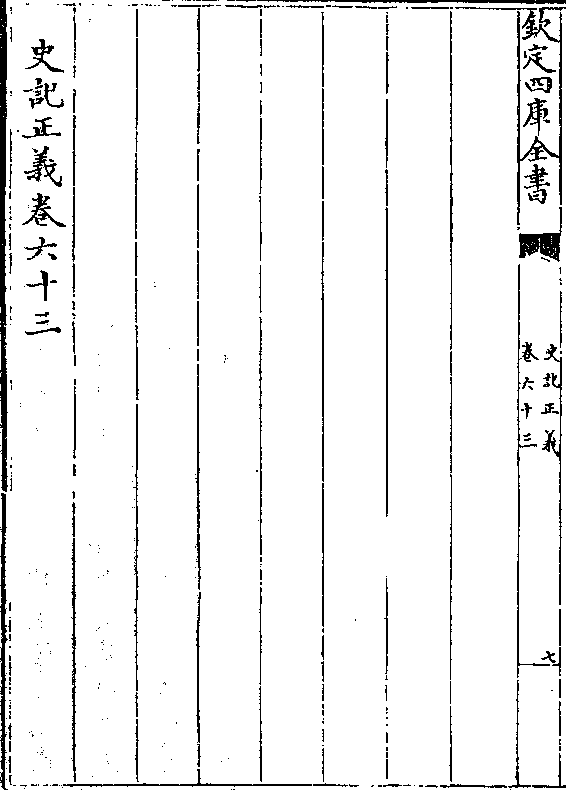 欽定四庫全書
史記正義
卷六十三
七
史記正義卷六十三